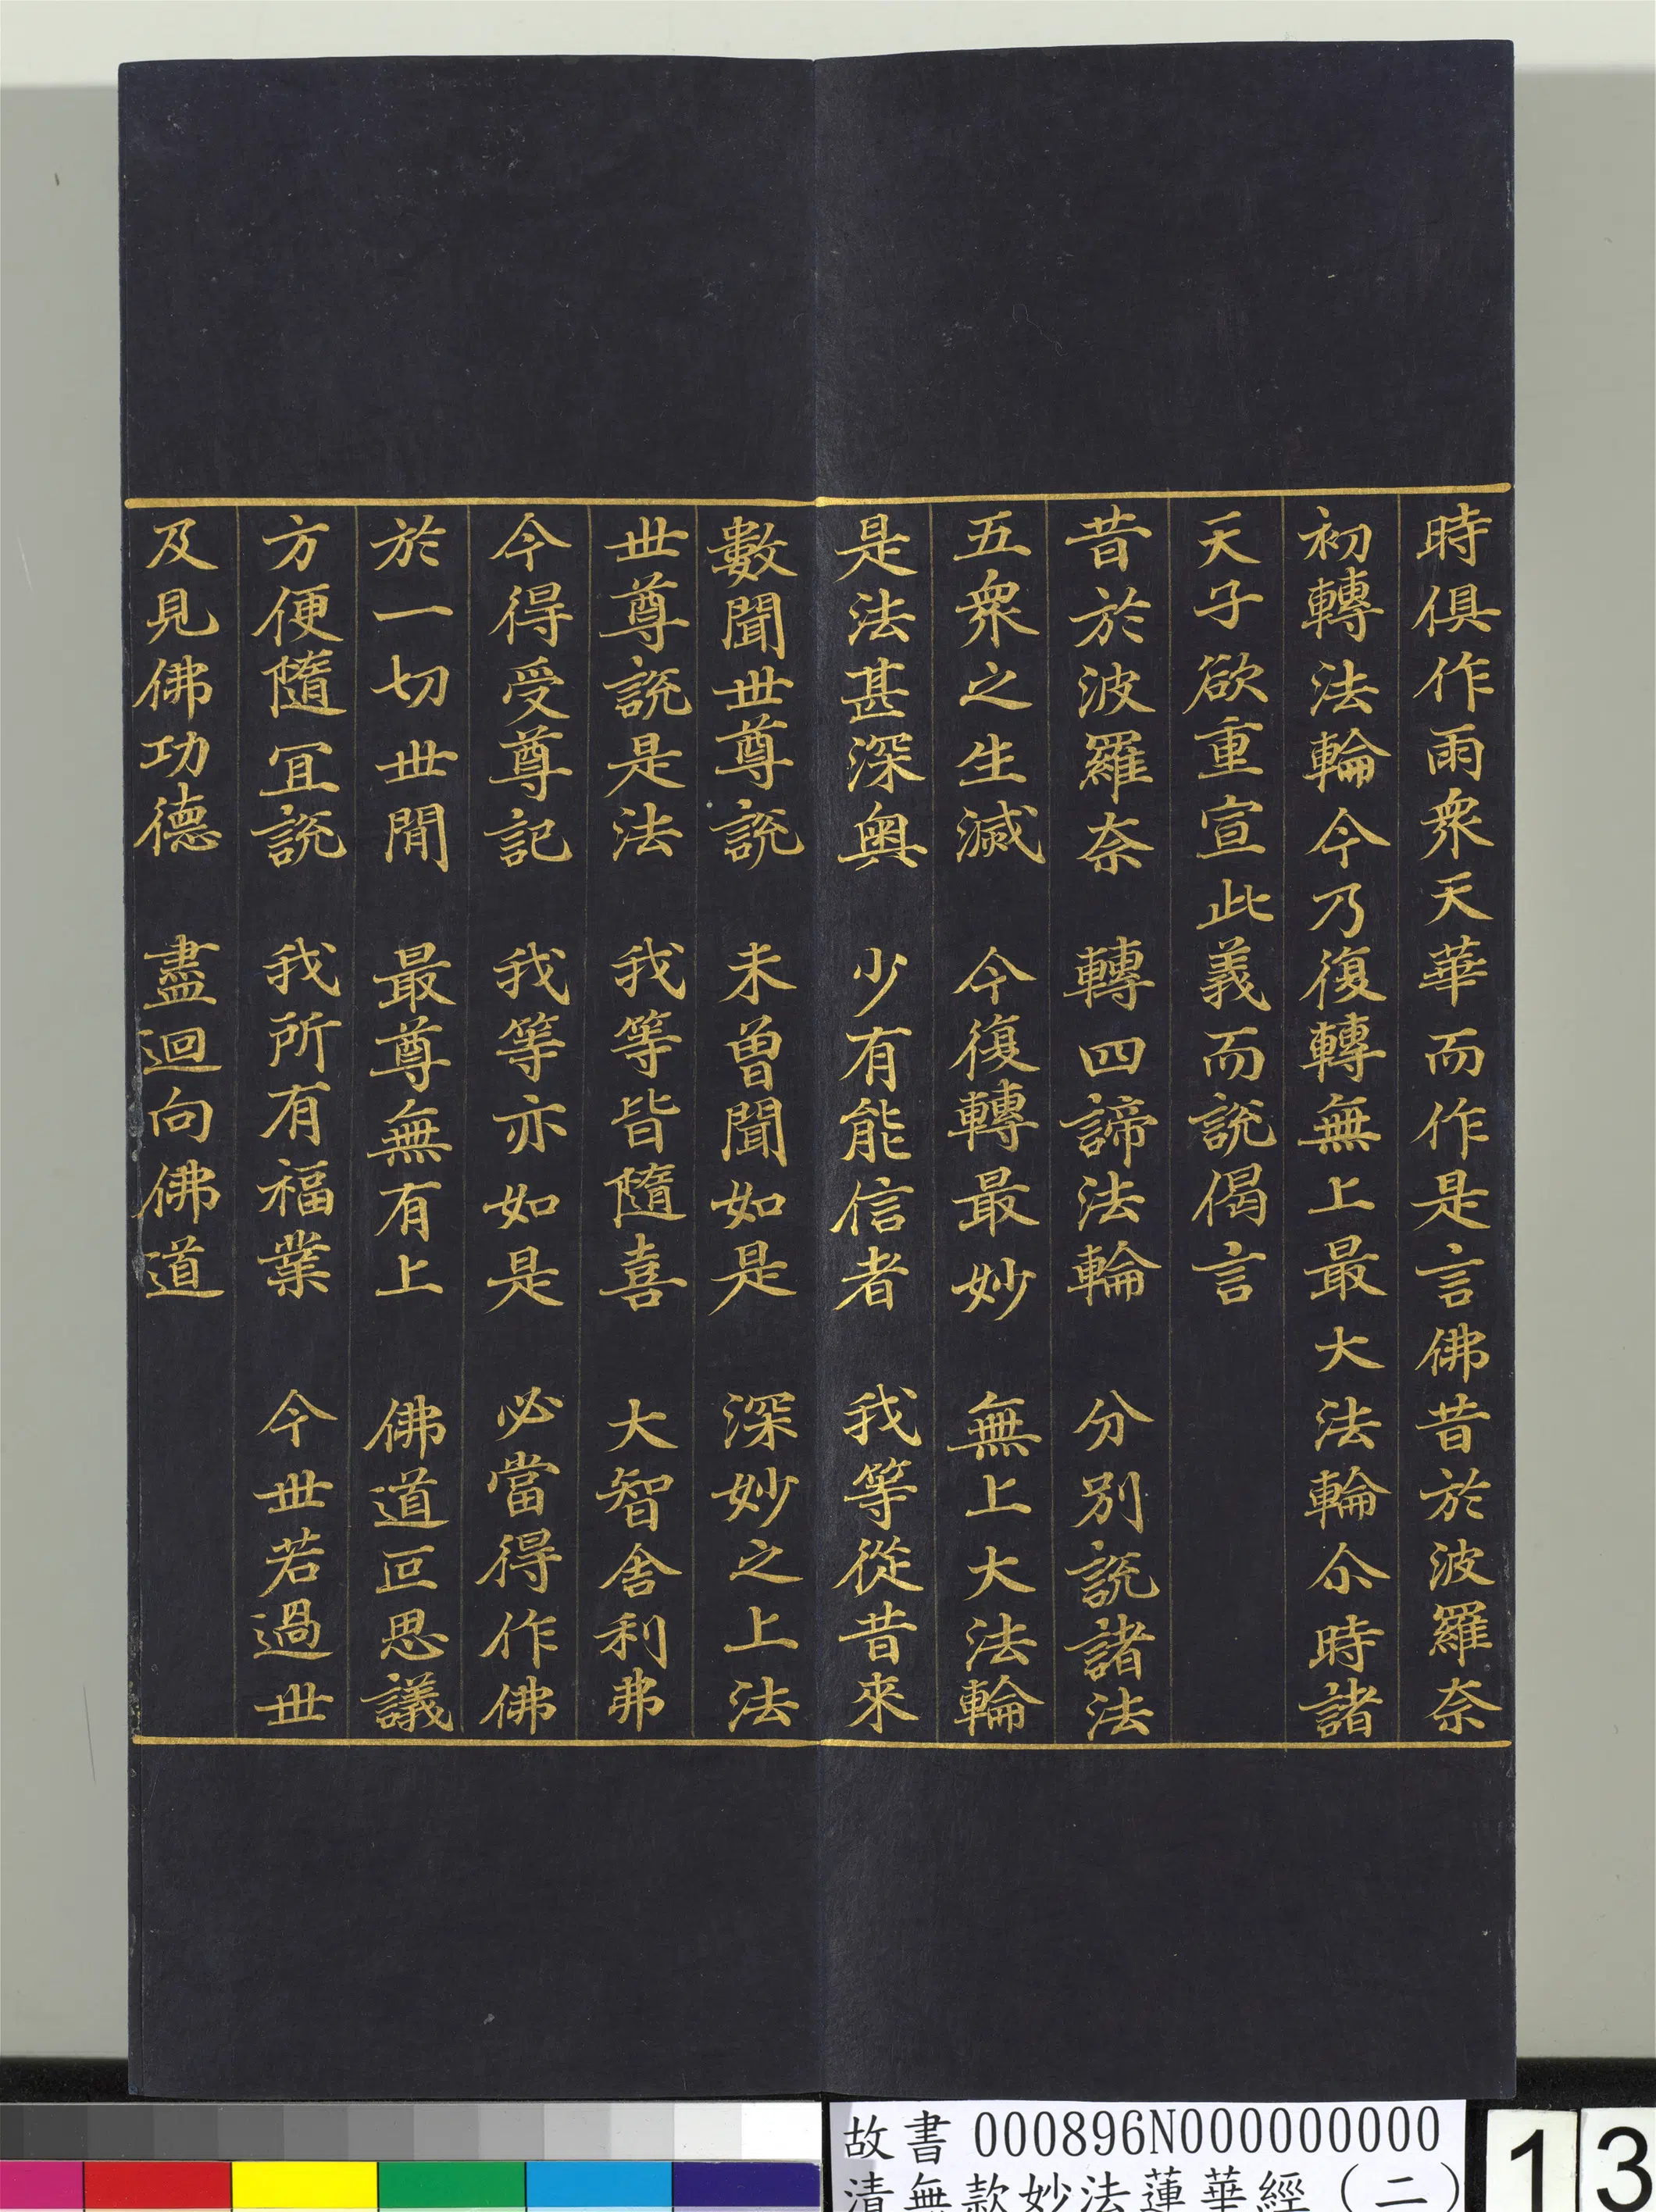 時俱作雨衆天華而作是言佛昔於波羅奈
初轉法輪今乃復轉無上最大法輪尒時諸
天子欲重宣此義而說偈言
昔於波羅奈　轉四諦法輪　分別說諸法
五衆之生滅　今復轉最妙　無上大法輪
是法甚深奥　少有能信者　我等從昔來
數聞世尊說　未曾聞如是　深妙之上法
世尊說是法　我等皆隨喜　大智舍利弗
今得受尊記　我等亦如是　必當得作佛
於一切世間　最尊無有上　佛道叵思議
方便隨宜說　我所有福業　今世若過世
及見佛功德　盡迴向佛道
故書 000896N000000000
清無款妙法蓮華經（二）
13